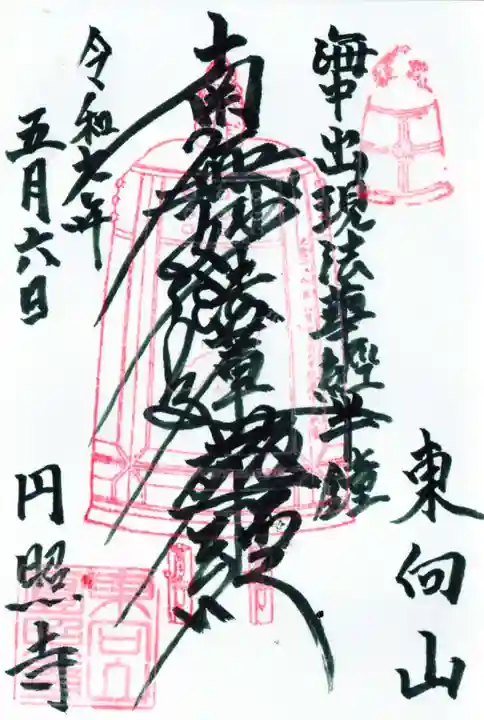 東向山
海中出現法華経半鐘
南無妙法蓮華経
令和六年
五月六日
円照寺